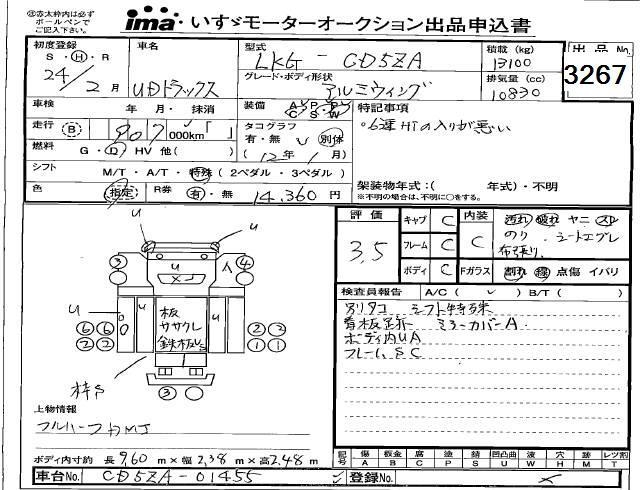 ※赤太枠内は必ず
ボールペンで
ご記入下さい。
ima いすゞモーターオークション出品申込書
初度登録
S・H・R
24年 2月
車名
UDトラックス
型式
LKG - CD5ZA
グレード・ボディ形状
アルミウィング
積載 (kg)
13100
排気量 (cc)
10830
出品No.
3267
車検 年・月・抹消
装備 A/C P/S P/W
特記事項
◦6速HIの入りが悪い
走行 B 907 000km
タコグラフ
有・無 別体
(12年 1月)
燃料 G・D・HV 他( )
シフト M/T・A/T・特殊(2ペダル・3ペダル)
架装物年式:( 年式)・不明
※不明の場合は、不明に○をする。
色 指定 R券 有・無 14,360円
評価
3.5
キャブ C
フレーム C
ボディ C
内装
C
Fガラス
汚れ 破れ ヤニ スレ
のり シートエグレ
布張り
割れ 線 点傷 イバリ
検査員報告 A/C( ✓ ) B/T( )
別タコ シフト特殊
看板跡 ミラーカバーA
ボディ内UA
フレームSC
U
U
U
U
U
U
U
3
4
6 6
2 2
2 2
1 1
3
板
ササクレ
鉄板US
枠S
上物情報
フルハーフDMJ
ボディ内寸約 長9,60m×幅2,38m×高2,48m
記号
傷 板金 腐 塗 錆 凹凸曲 波 穴 跡 レツ割
A B C P S U W H M T
車台No. CD5ZA-01455
登録No.